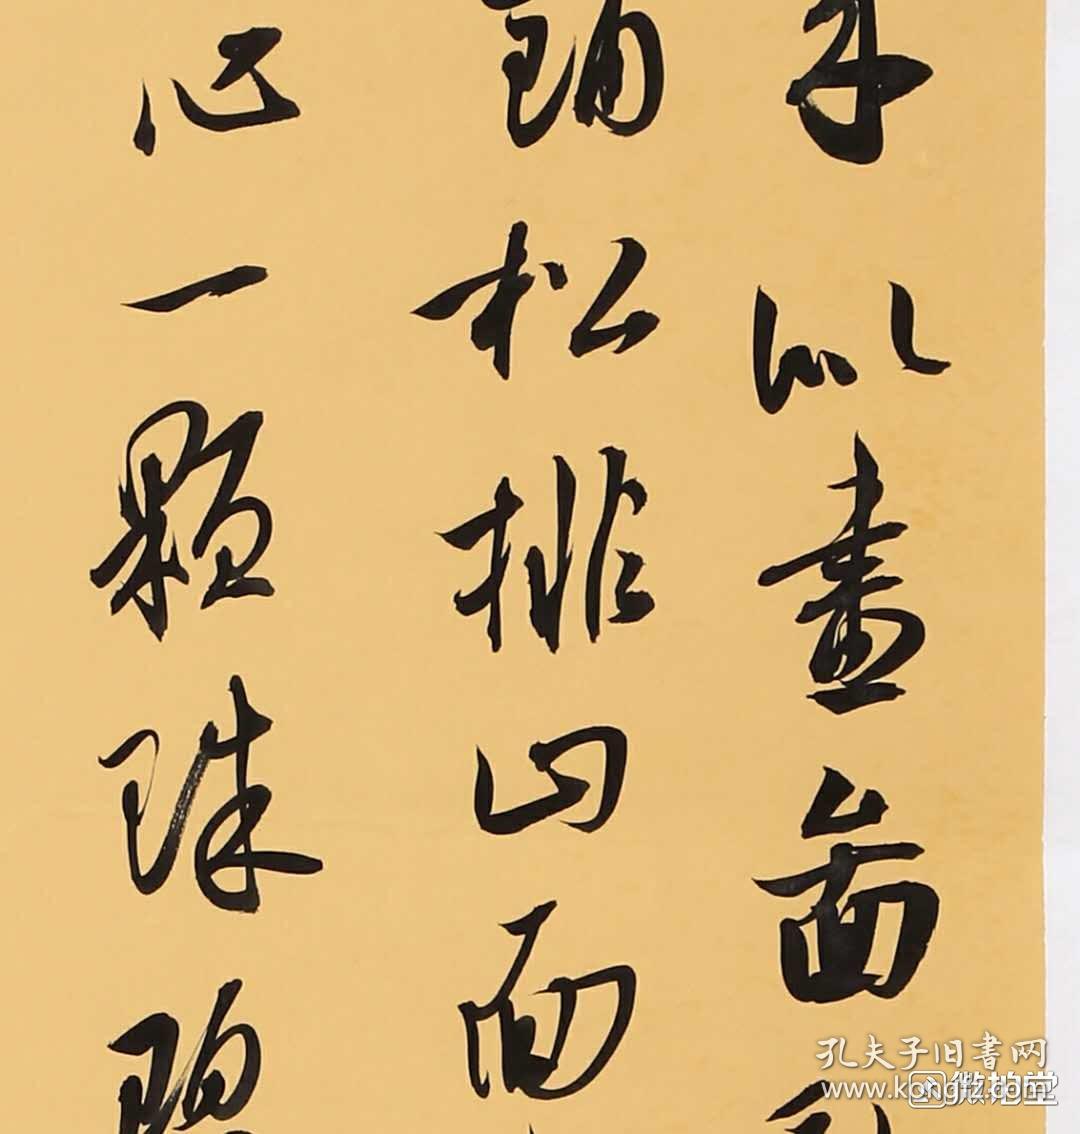 来似畫啚
鋪松排山面
心一顆珠碧
孔夫子旧书网
www.kongfz.com
微拍堂